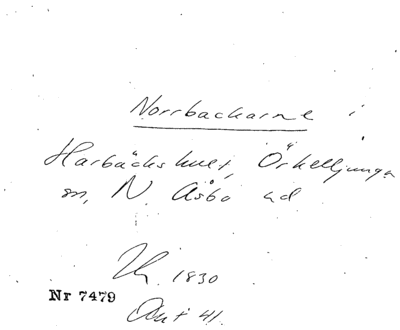 Norrbackarne i
Harbäckshult, Örkelljunga
sn, N. Åsbo hd
1830
Nr 7479
Akt 41.